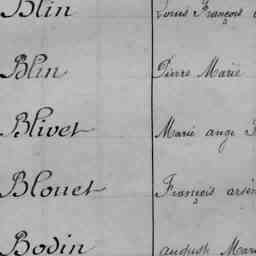 Blin Louis François
Blin Pierre Marie
Blivet Marie ange
Blouet François
Bodin august Mari